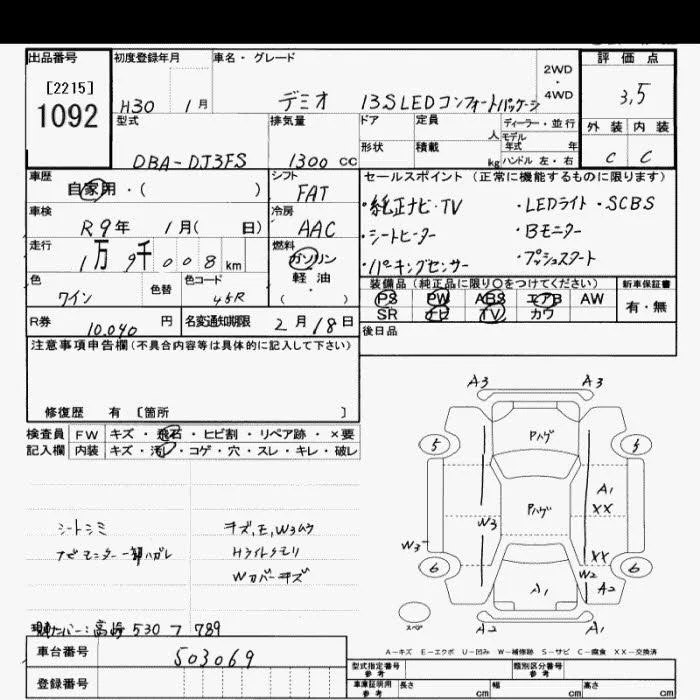 出品番号 初度登録年月 車名・グレード 評価点
[2215]
1092
H30 1月 デミオ 13S LEDコンフォートパッケージ 2WD・4WD 3,5
型式 排気量 ドア 定員 人 ディーラー・並行 外装 内装
モデル年式 年
DBA-DJ3FS 1300 CC 形状 積載 kg ハンドル 左・右 C C
車歴 シフト セールスポイント(正常に機能するものに限ります)
自家用・( ) FAT
・純正ナビ・TV ・LEDライト・SCBS
車検 冷房
R9年 1月( 日) AAC
・シートヒーター Bモニター
走行 燃料
1万9千008km ガソリン
軽油
( )
・パーキングセンサー ・プッシュスタート
色 色替 色コード
ワイン 45R
装備品(純正品に限り○をつけてください) 新車保証書
PS PW ABS エアB AW 有・無
SR ナビ TV カワ
R券 10.040円 名変通知期限 2月18日
後日品
注意事項申告欄(不具合内容等は具体的に記入して下さい)
修復歴 有 [箇所 ]
検査員 FW キズ・飛石・ヒビ割・リペア跡・×要
記入欄 内装 キズ・汚レ・コゲ・穴・スレ・キレ・破レ
シートシミ
ナビモニター一部ハガレ
キズ,E,Wヨムウ
Hライトクモリ
Wカバーキズ
A3 A3
Pハゲ
5 5
A1
XX
Pハゲ
W3
W3
XX
6 6
W2
A1 A2
スペア
A2 A1
:高崎 530 フ 789
車台番号 503069
登録番号
A-キズ E-エクボ U-凹み W-補修跡 S-サビ C-腐食 XX-交換済
型式指定番号 参考 類別区分番号 参考
車庫証明用 参考 長さ cm 幅 cm 高さ cm